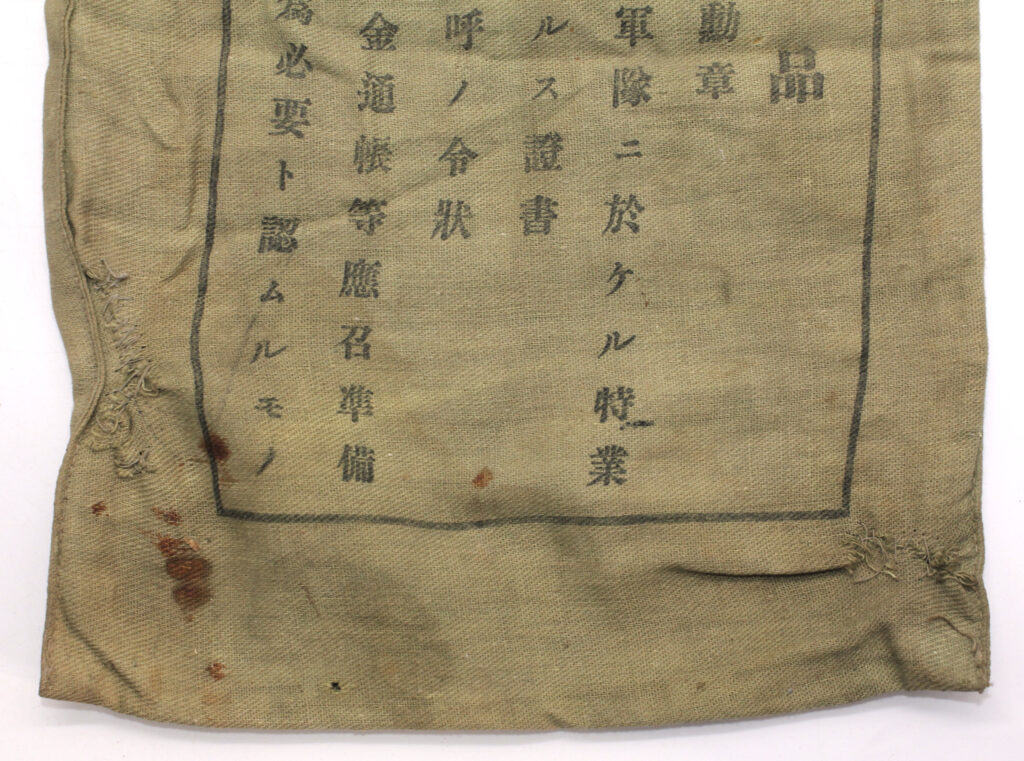 品
勳章
軍隊ニ於ケル特業
ルス證書
呼ノ令狀
金通帳等應召準備
為必要ト認ムルモノ